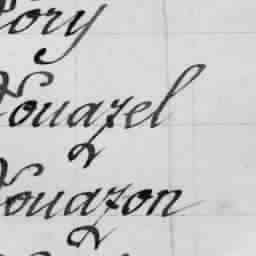 ory
ouazel
ouazon